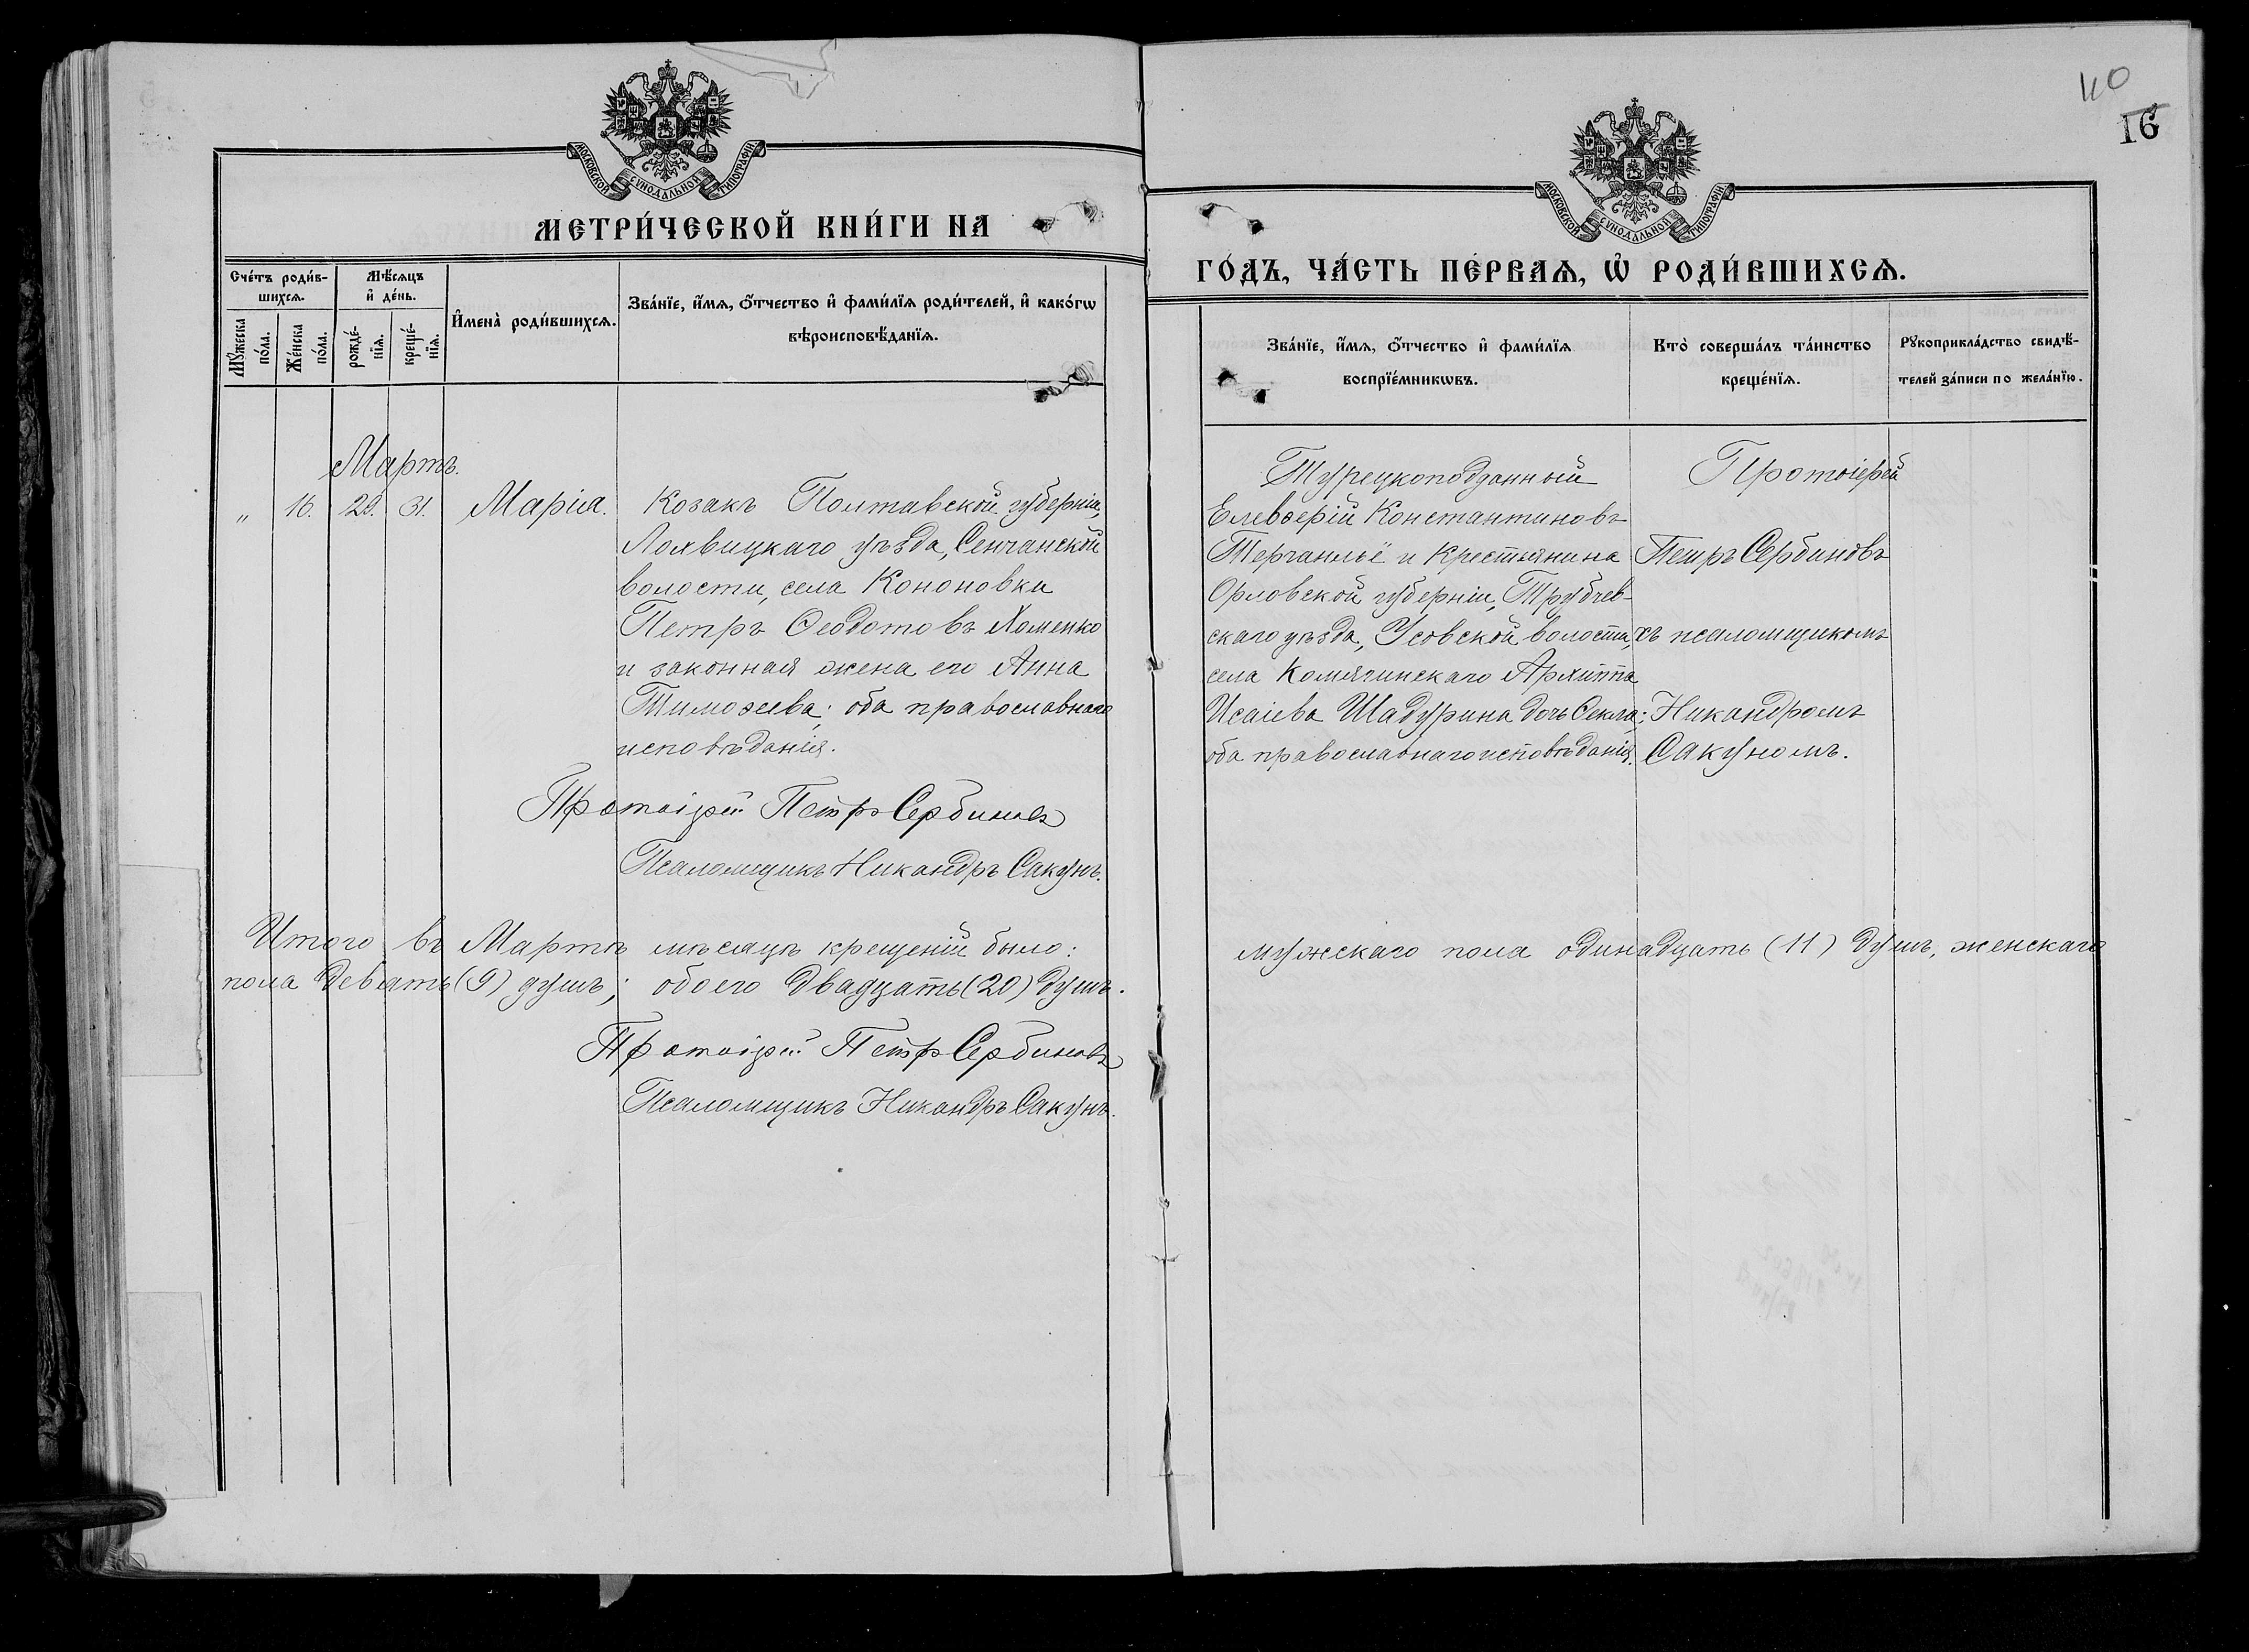 110
16
МОСКОВСКОЙ СѴНОДАЛЬНОЙ ТИПОГРАФІИ
МЕТРИ́ЧЕСКОЙ КНИ́ГИ НА
Сче́тъ роди́в-
шихсѧ.
Мꙋ́жеска
по́ла.
Же́нска
по́ла.
Мѣ́сѧцъ
и҆ де́нь.
рожде́-
нїѧ.
креще́-
нїѧ.
И҆мена̀ роди́вшихсѧ.
Зва́нїе, и҆́мѧ, ѻ҆́тчество и҆ фами́лїѧ роди́телей, и҆ како́гѡ
вѣроисповѣ́данїѧ.
Мартъ.
„ 16. 29. 31. Марія.
Козакъ Полтавской губерніи,
Лохвицкаго уѣзда, Сенчанской
волости, села Кононовки
Петръ Ѳеодотовъ Хоменко
и законная жена его Анна
Тимоѳеева; оба православнаго
исповѣданія.
Протоіерей Петръ Сербиновъ
Псаломщикъ Никандръ Сакунъ.
Итого въ Мартѣ мѣсяцѣ крещеній было:
пола девять (9) душъ; обоего двадцать (20) душъ.
Протоіерей Петръ Сербиновъ
Псаломщикъ Никандръ Сакунъ.
МОСКОВСКОЙ СѴНОДАЛЬНОЙ ТИПОГРАФІИ
ГО́ДЪ, ЧА́СТЬ ПЕ́РВАѦ, Ѡ҆ РОДИ́ВШИХСѦ.
Зва́нїе, и҆́мѧ, ѻ҆́тчество и҆ фами́лїѧ
воспрїе́мникѡвъ.
Кто̀ соверша́лъ та́инство
креще́нїѧ.
Рꙋкоприкла́дство свидѣ́-
телей за́писи по жела́нїю.
Турецкоподданный
Елевѳерій Константиновъ
Терчанльё и Крестьянина
Орловской губерніи, Трубчев-
скаго уѣзда, Усовской волости,
села Комягинскаго Архиппа
Исаіева Шадурина дочь Ѳекла;
оба православнаго исповѣданія.
Протоіерей
Петръ Сербиновъ
съ псаломщикомъ
Никандромъ
Сакуномъ.
мужескаго пола одинадцать (11) душъ, женскаго